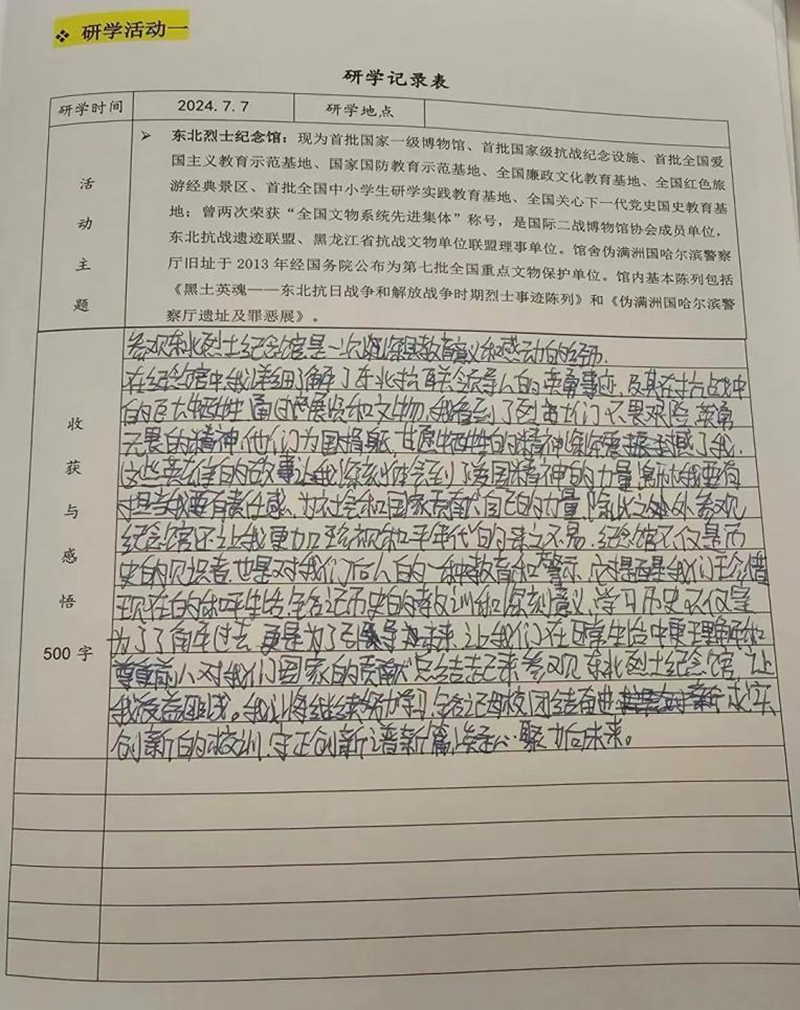 ❖ 研学活动一
研学记录表
研学时间 2024.7.7 研学地点
活动主题
➢ 东北烈士纪念馆：现为首批国家一级博物馆、首批国家级抗战纪念设施、首批全国爱
国主义教育示范基地、国家国防教育示范基地、全国廉政文化教育基地、全国红色旅
游经典景区、首批全国中小学生研学实践教育基地、全国关心下一代党史国史教育基
地；曾两次荣获“全国文物系统先进集体”称号，是国际二战博物馆协会成员单位，
东北抗战遗迹联盟、黑龙江省抗战文物单位联盟理事单位。馆舍伪满洲国哈尔滨警察
厅旧址于 2013 年经国务院公布为第七批全国重点文物保护单位。馆内基本陈列包括
《黑土英魂——东北抗日战争和解放战争时期烈士事迹陈列》和《伪满洲国哈尔滨警
察厅遗址及罪恶展》。
收获与感悟
500 字
参观东北烈士纪念馆是一次深具教育意义和感动的经历.
在纪念馆中我详细了解了东北抗联领导人的英勇事迹,及其在抗战中
的巨大牺牲.通过展览和文物,我看到了烈士们不畏艰险,英勇
无畏的精神,他们为国捐躯,甘愿牺牲的精神深深震撼感了我,
这些英雄的故事让我深刻体会到了爱国精神的力量,我要有
担当我要有责任感,为社会和国家贡献自己的力量,除此之处外,参观
纪念馆还让我更加珍视和平年代的来之不易,纪念馆不仅是历
史的见识者,也是对我们后人的一种教育和警示,它提醒我们珍惜
现在的和平生活,牢记历史的教训和深刻意义,学习历史不仅是
为了了解过去,更是为了引导未来,让我们在日常生活中更理解和
尊重前人对我们国家的贡献.总结起来,参观东北烈士纪念馆,让
我受益匪浅。我认将继续努力学习,牢记母校团结奋进 求实
创新的校训,守正创新谱新篇,凝心聚力向未来。